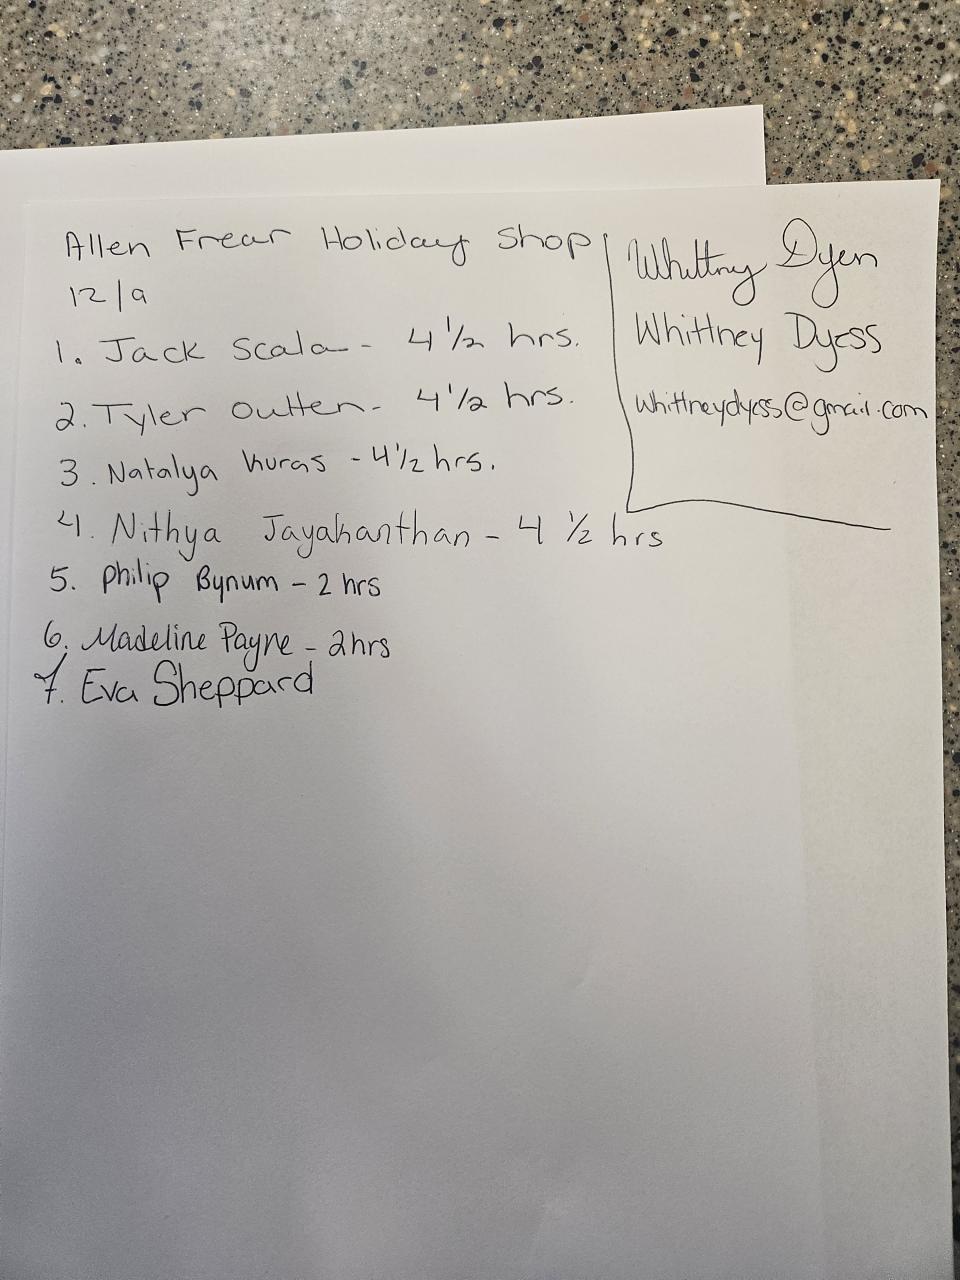 Allen Frear Holiday Shop
12/9
1. Jack Scala - 4 1/2 hrs.
2. Tyler Outten - 4 1/2 hrs.
3. Natalya Kuras - 4 1/2 hrs.
4. Nithya Jayakanthan - 4 1/2 hrs
5. Philip Bynum - 2 hrs
6. Madeline Payne - 2 hrs
7. Eva Sheppard
Whittney Dyess
Whittney Dyess
whittneydyess@gmail.com